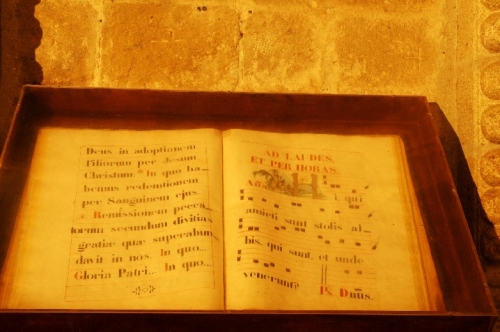 Deus in adoptionem
Filiorum per Jesum
Christum. In quo ha-
bemus redemtionem
per Sanguinem ejus.
Remissionem pecca-
torum secundum divitia
gratiæ quæ superabun
davit in nos. In quo...
Gloria Patri... In quo...
AD LAUDES,
ET PER HORAS.
i, qui
amicti sunt stolis al-
bis, qui sunt, et unde
venerunt?
R. Dnus.